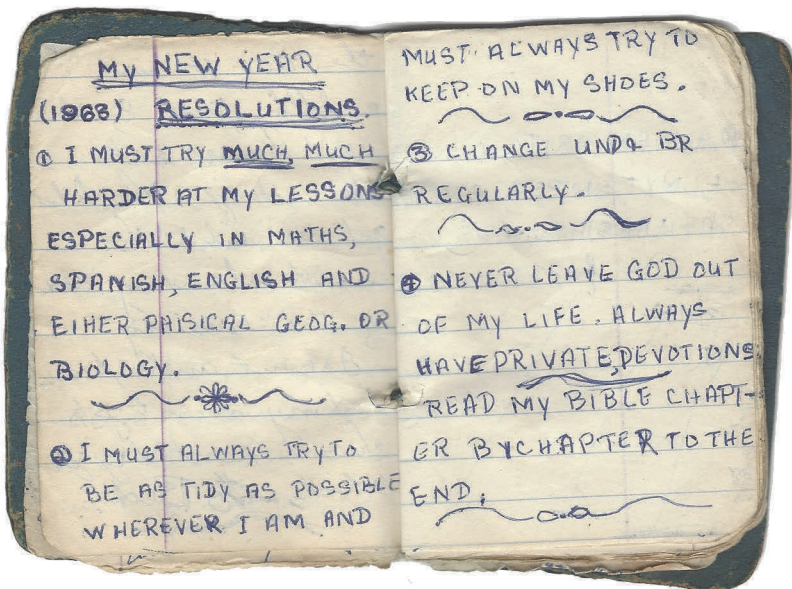 MY NEW YEAR
(1968) RESOLUTIONS.
① I MUST TRY MUCH, MUCH
HARDER AT MY LESSONS
ESPECIALLY IN MATHS,
SPANISH, ENGLISH AND
EIHER PHISICAL GEOG. OR
BIOLOGY.
② I MUST ALWAYS TRY TO
BE AS TIDY AS POSSIBLE
WHEREVER I AM AND
MUST ALWAYS TRY TO
KEEP ON MY SHOES.
③ CHANGE UND & BR
REGULARLY.
④ NEVER LEAVE GOD OUT
OF MY LIFE. ALWAYS
HAVE PRIVATE, DEVOTIONS
READ MY BIBLE CHAPT-
ER BY CHAPTER TO THE
END.